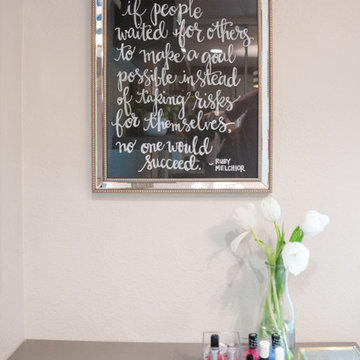 if people
waited for others
to make a goal
possible instead
of taking risks
for themselves,
no one would
succeed. - RUBY
MELCHIOR